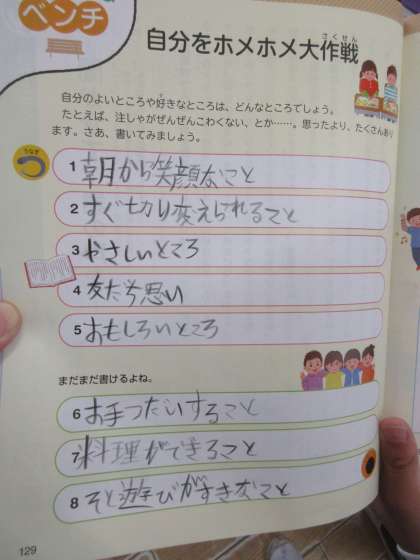 ベンチ
自分をホメホメ大作戦
さくせん
自分のよいところや好きなところは、どんなところでしょう。
たとえば、注しゃがぜんぜんこわくない、とか……。思ったより、たくさんあり
ます。さあ、書いてみましょう。
1 朝から笑顔なこと
2 すぐ切り変えられること
3 やさしいところ
4 友だち思い
5 おもしろいところ
まだまだ書けるよね。
6 お手つだいすること
7 料理ができること
8 そと遊びがすきなこと
129